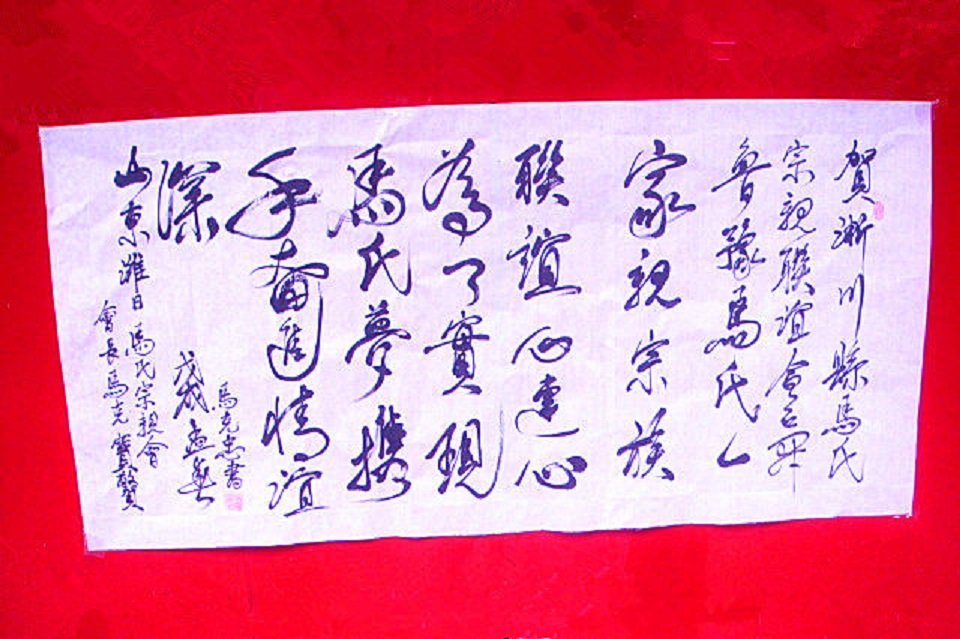 賀淅川縣馬氏
宗親聯誼會
魯豫馬氏一
家親宗族
聯誼心連心
為了實現
馬氏夢攜
手奮進情誼
深
馬克忠書
戊戌孟
山東濰日馬氏宗親會
會長馬克